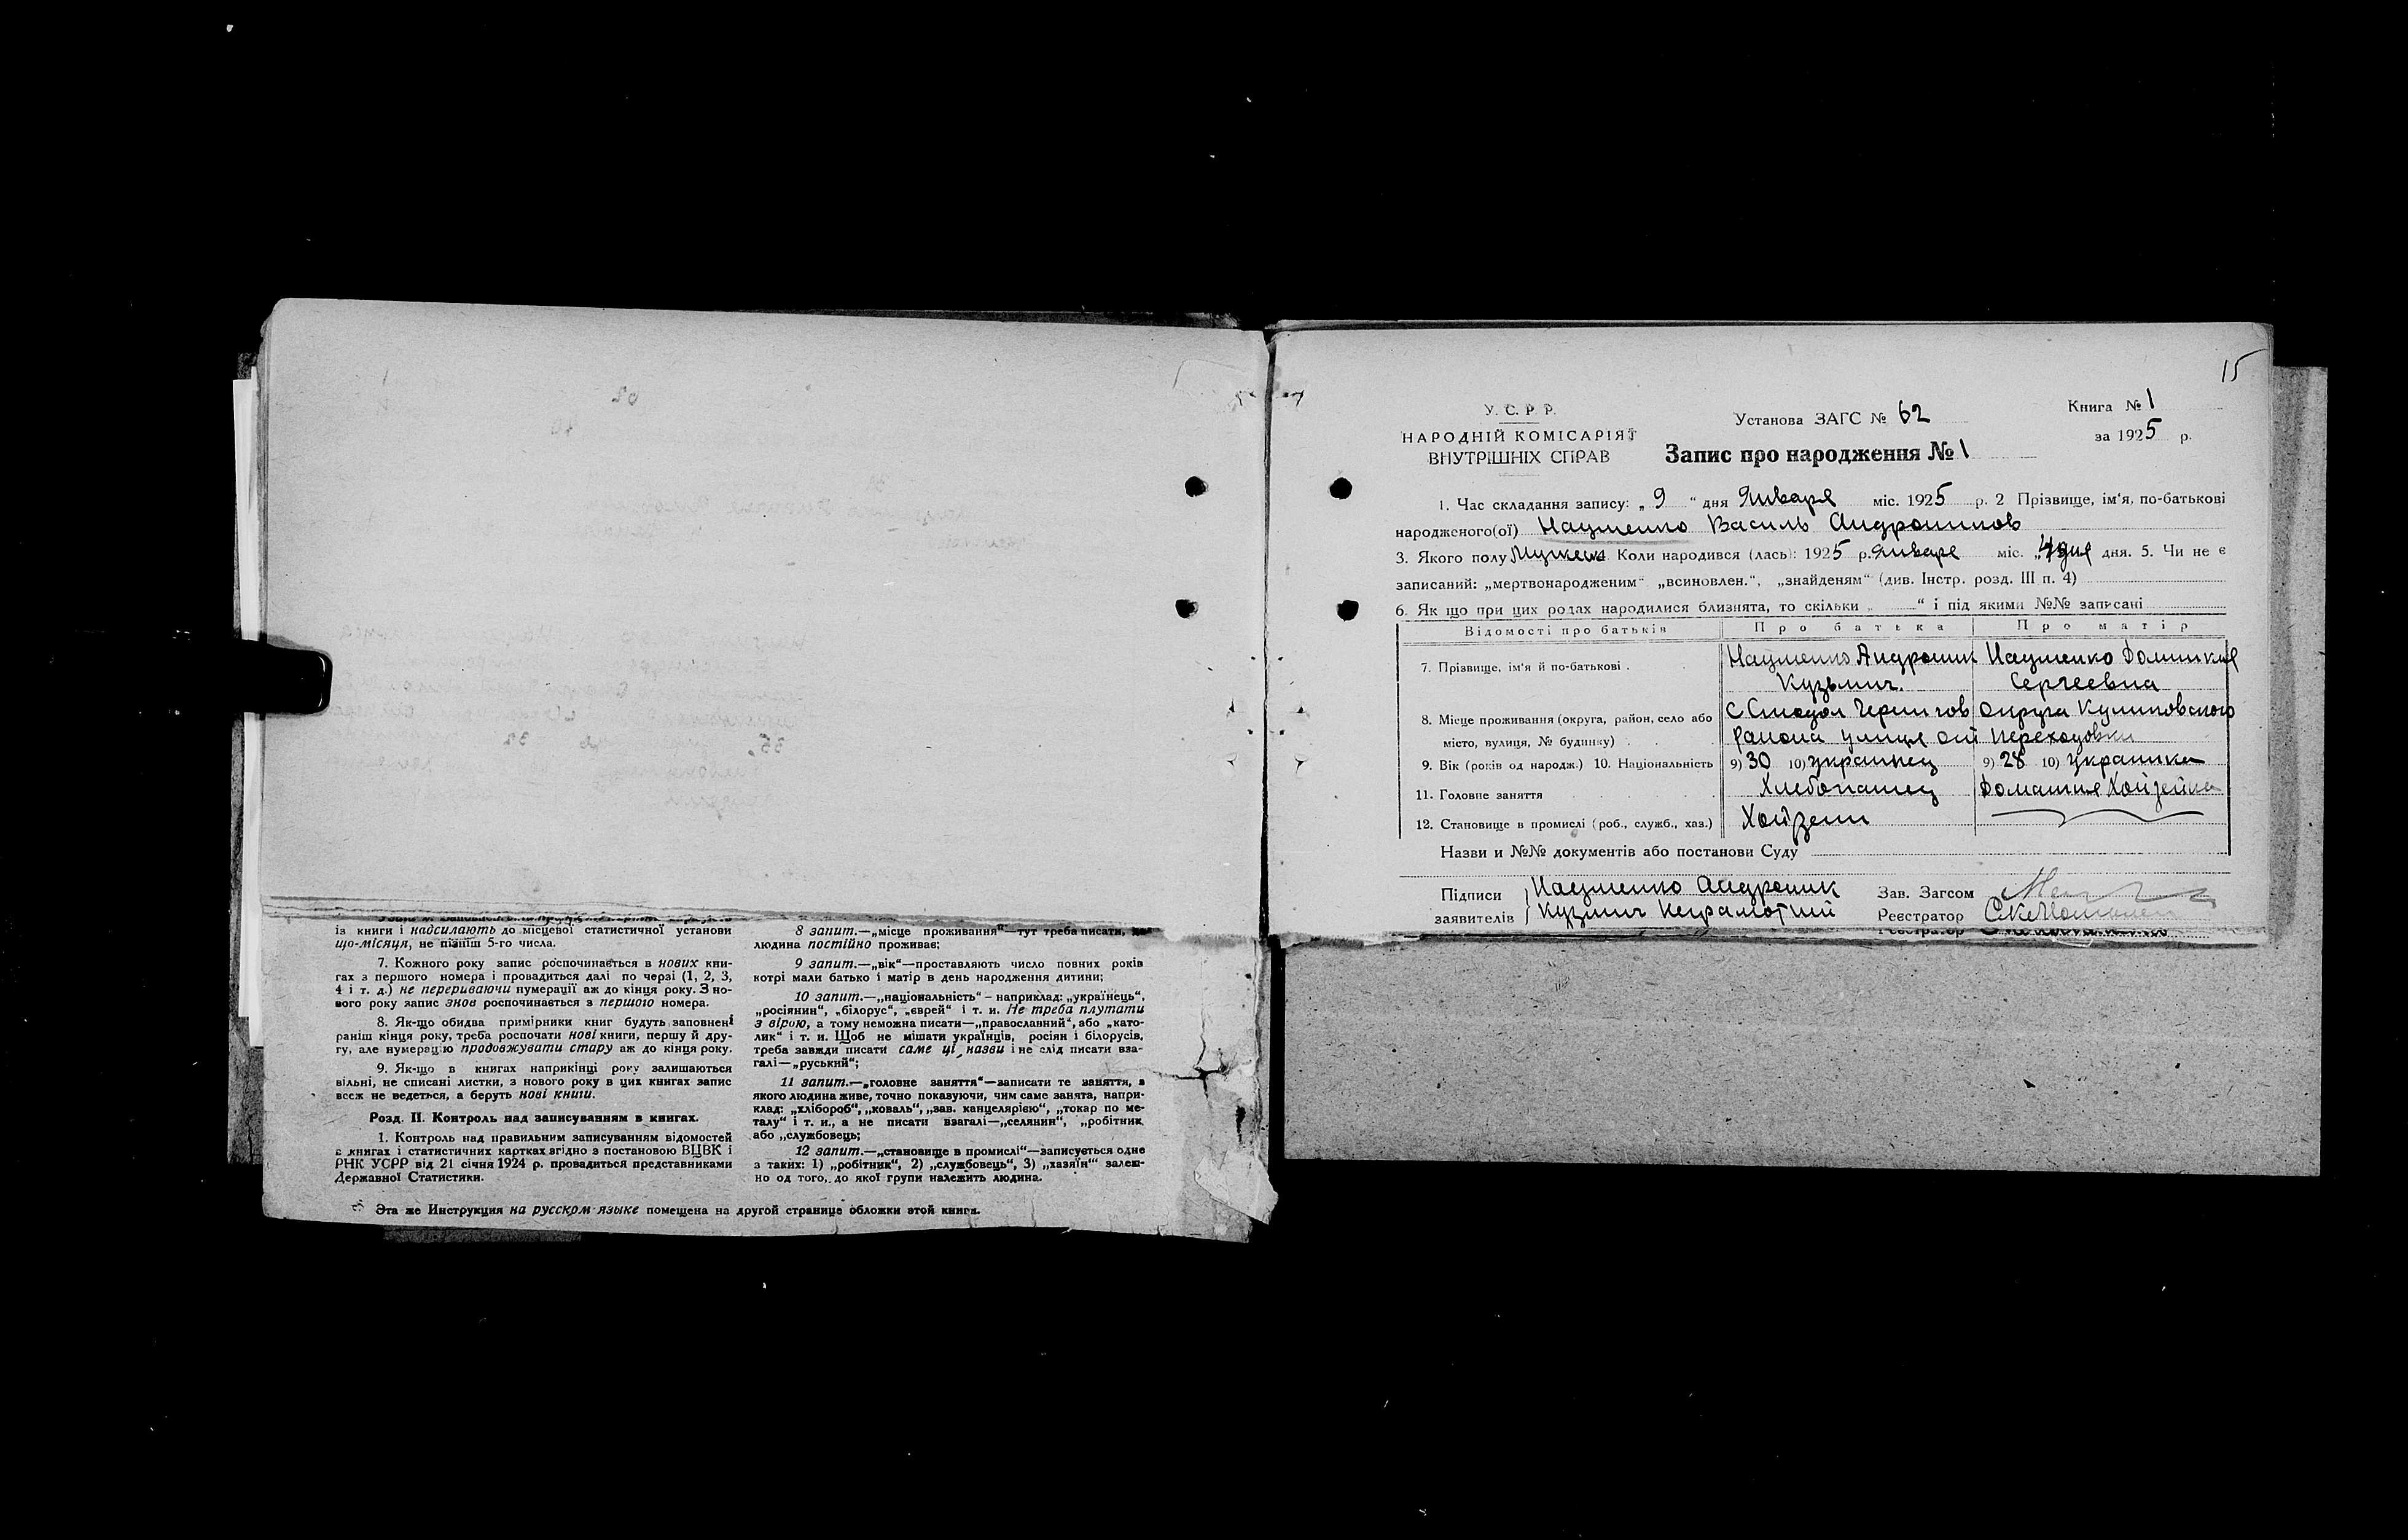 із книги і надсилають до місцевої статистичної установи
що-місяця, не пізніш 5-го числа.
7. Кожного року запис розпочинається в нових кни-
гах з першого номера і провадиться далі по черзі (1, 2, 3,
4 і т. д.) не перериваючи нумерації аж до кінця року. З но-
вого року запис знов розпочинається з першого номера.
8. Як-що обидва примірники книг будуть заповнені
раніш кінця року, треба розпочати нові книги, першу й дру-
гу, але нумерацію продовжувати стару аж до кінця року.
9. Як-що в книгах наприкінці року залишаються
вільні, не списані листки, з нового року в цих книгах запис
всеж не ведеться, а беруть нові книги.
Розд. II. Контроль над записуванням в книгах.
1. Контроль над правильним записуванням відомостей
в книгах і статистичних картках згідно з постановою ВЦВК і
РНК УСРР від 21 січня 1924 р. провадиться представниками
Державної Статистики.
8 запит.—„місце проживання“—тут треба писати, де
людина постійно проживає;
9 запит.—„вік“—проставляють число повних років
котрі мали батько і матір в день народження дитини;
10 запит.—„національність“ – наприклад: „українець“,
„росіянин“, „білорус“, „єврей“ і т. и. Не треба плутати
з вірою, а тому неможна писати—„православний“, або „като-
лик“ і т. и. Щоб не мішати українців, росіян і білорусів,
треба завжди писати саме ці назви і не слід писати вза-
галі—„руський“;
11 запит.—„головне заняття“—записати те заняття, з
якого людина живе, точно показуючи, чим саме занята, напри-
клад: „хлібороб“, „коваль“, „зав. канцелярією“, „токар по ме-
талу“ і т. и., а не писати взагалі—„селянин“, „робітник
або „службовець;
12 запит.—„становище в промислі“—записується одне
з таких: 1) „робітник“, 2) „службовець“, 3) „хазяїн“‘ залеж-
но од того, до якої групи належить людина.
Эта же Инструкция на русском языке помещена на другой странице обложки этой книги.
15
У. С. Р. Р.
НАРОДНІЙ КОМІСАРІЯТ
ВНУТРІШНІХ СПРАВ
Установа ЗАГС № 62
Книга № 1
за 1925 р.
Запис про народження № 1
1. Час складання запису: „ 9 “ дня Января міс. 1925 р. 2 Прізвище, ім‘я, по-батькові
народженого(ої) Науменко Василь Андроников
3. Якого полу Мужеск Коли народився (лась): 1925 р. Января міс. „ 4 дня дня. 5. Чи не є
записаний: „мертвонародженим“ „всиновлен.“, „знайденям“ (див. Інстр. розд. III п. 4)
6. Як що при цих родах народилися близнята, то скільки „ “ і під якими №№ записані
Відомості про батьків Про батька Про матір
7. Прізвище, ім‘я й по-батькові . Науменко Андроник Науменко Домникия
Кузьмич. Сергеевна
8. Місце проживання (округа, район, село або с Смодол Чернигов округа Куликовского
місто, вулиця, № будинку) . района улица Переходовки
9. Вік (років од народж.) 10. Національність 9) 30 10) украинец 9) 28 10) украинка
11. Головне заняття Хлебопашец Домашня
12. Становище в промислі (роб., служб., хаз.)
Назви и №№ документів або постанови Суду
Підписи Науменко Андроник
заявителів Кузмич Неграмотний
Зав. Загсом
Реєстратор